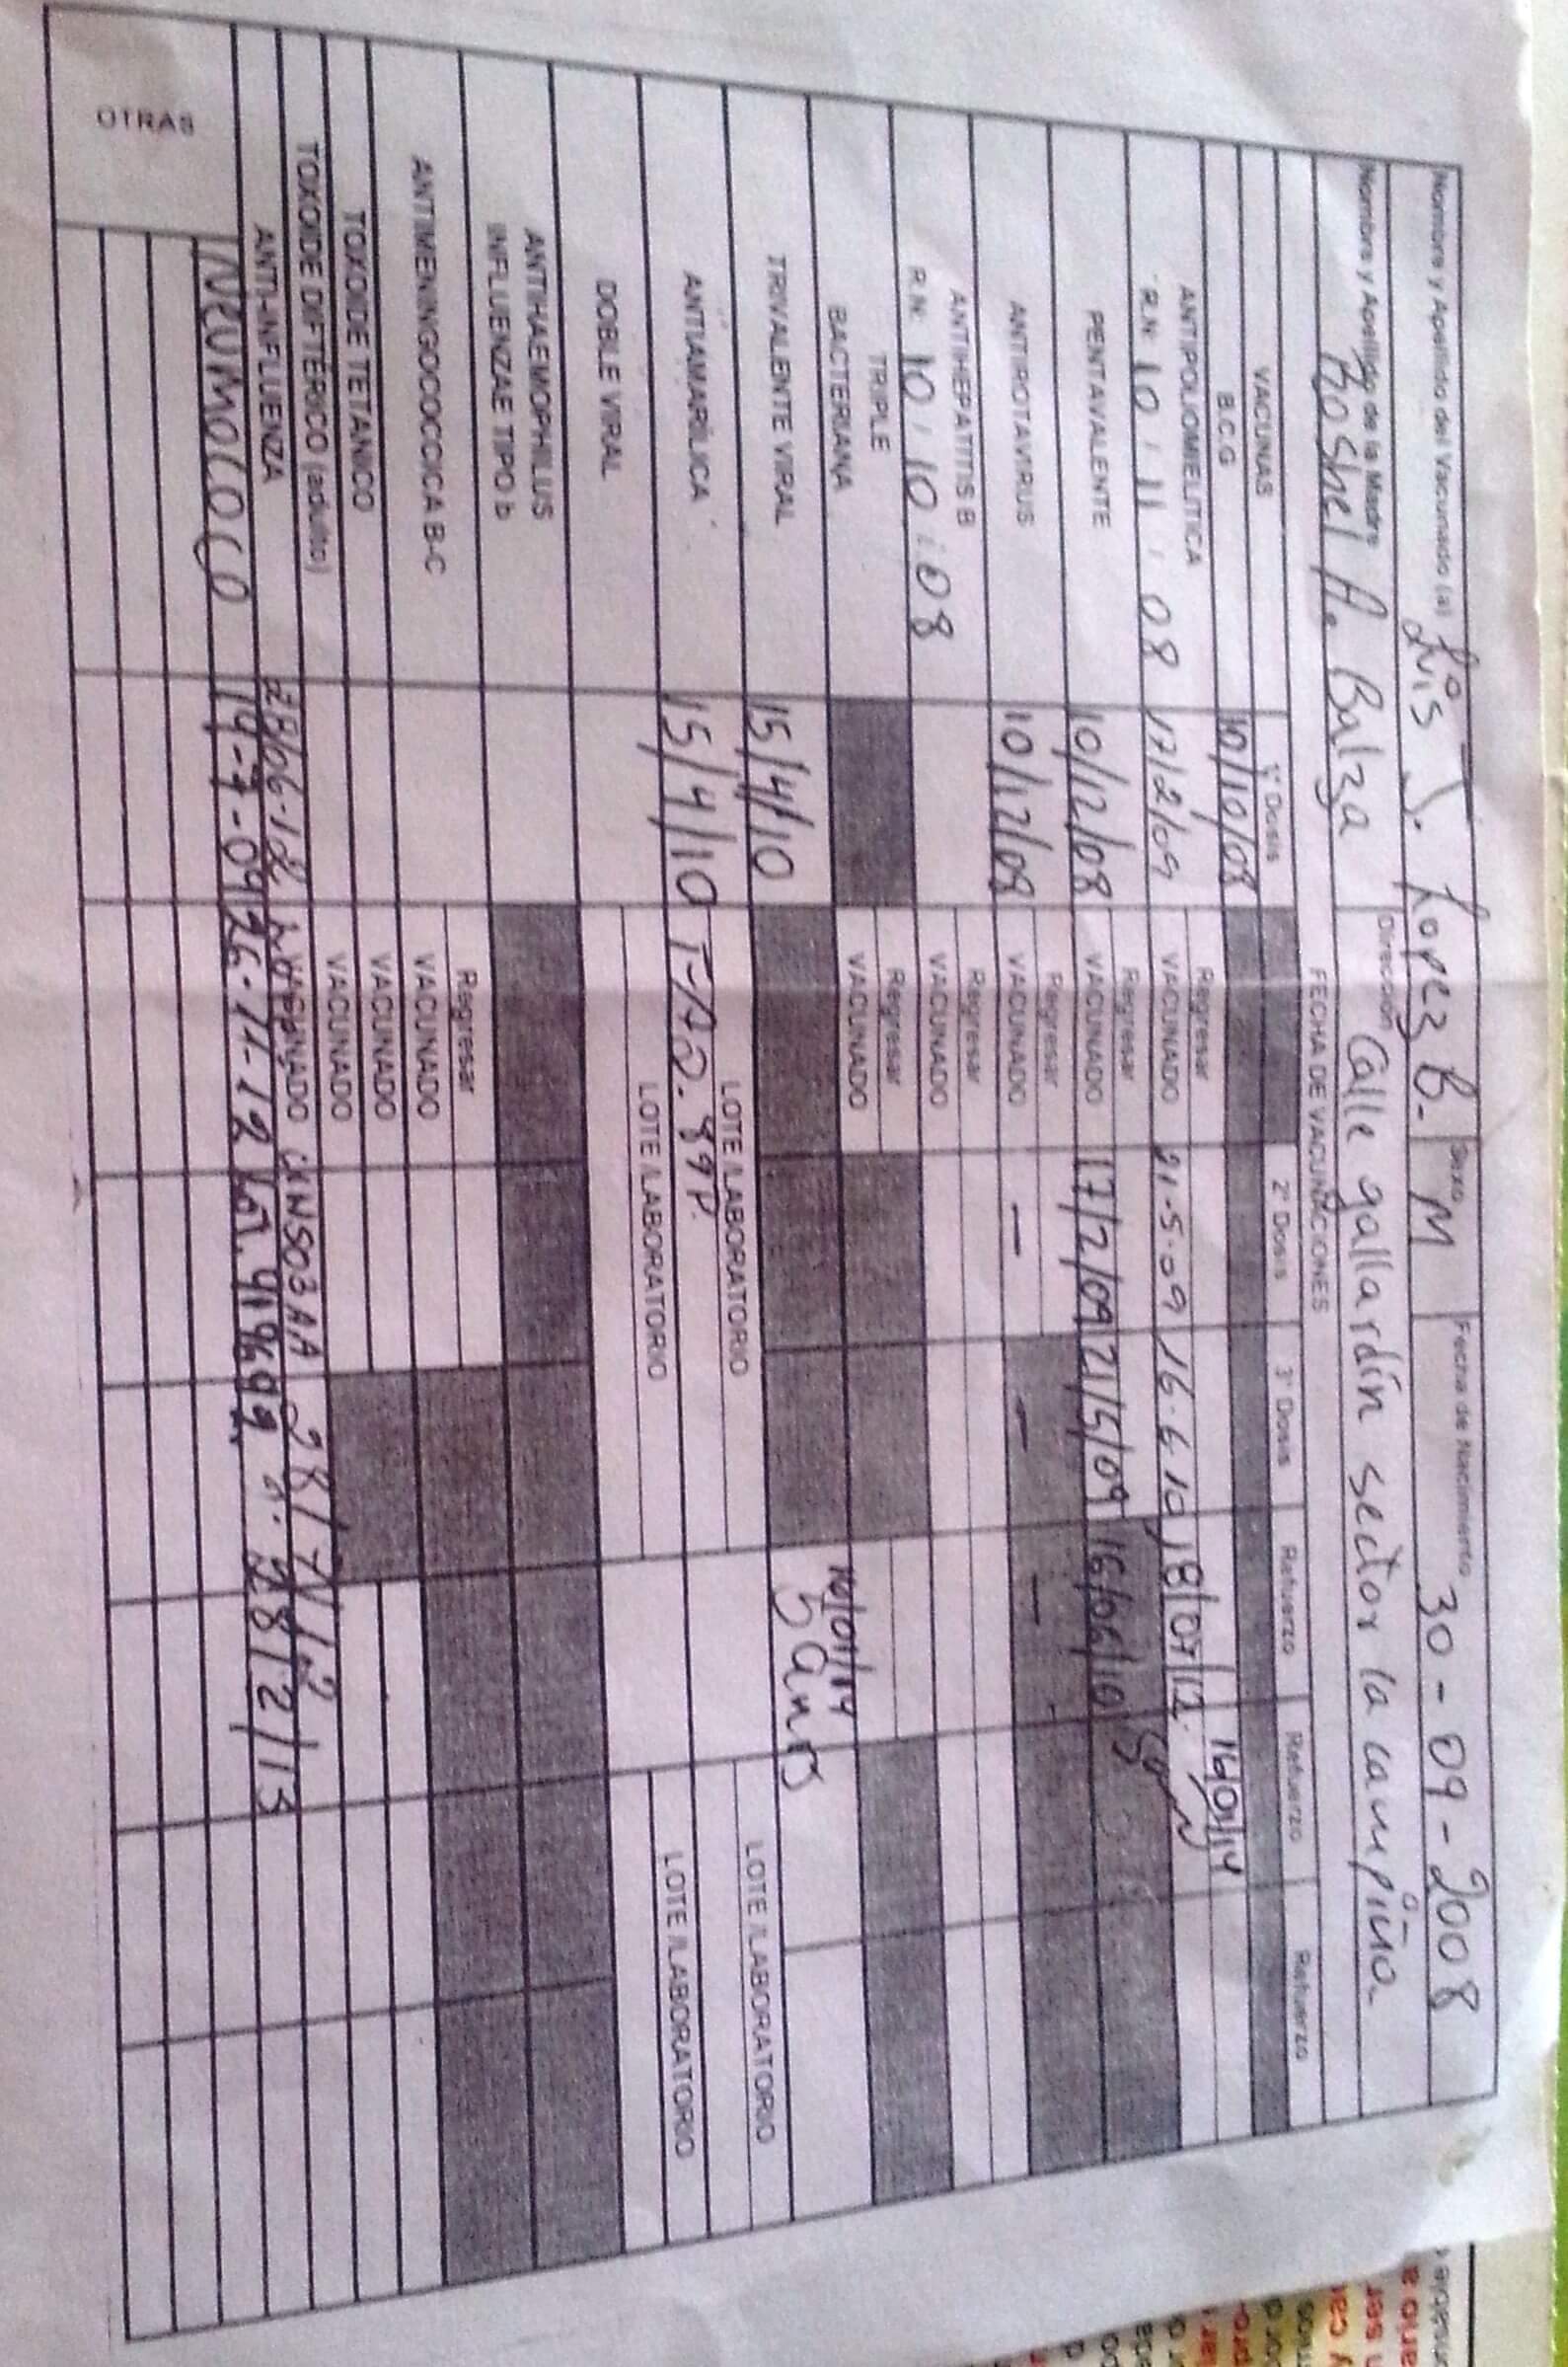 Nombre y Apellido del Vacunado (a) Luis J. Lopez B. Sexo M Fecha de Nacimiento 30-09-2008
Nombre y Apellido de la Madre Roshel A. Balza Dirección Calle gallardín sector la campiña
FECHA DE VACUNACIONES
VACUNAS 1ª Dosis 2ª Dosis 3ª Dosis Refuerzo Refuerzo Refuerzo
B.C.G 10/10/08
Regresar 16/01/14
ANTIPOLIOMIELITICA
R.N: 10 . 11 . 08 17/2/09 VACUNADO 21.5.09 16.6.10 18/07/12.
Regresar
PENTAVALENTE 10/12/08 VACUNADO 17/2/09 21/5/09 16/06/10
Regresar
ANTIROTAVIRUS 10/12/08 VACUNADO — — —
ANTIHEPATITIS B Regresar
R.N: 10 . 10 . 08 VACUNADO
TRIPLE Regresar
BACTERIANA VACUNADO
16/01/14
TRIVALENTE VIRAL 15/4/10 5 años
LOTE /LABORATORIO LOTE /LABORATORIO
ANTIAMARÍLICA 15/4/10
LOTE /LABORATORIO LOTE /LABORATORIO
DOBLE VIRAL
ANTIHAEMOPHILUS
INFLUENZAE TIPO b
Regresar
ANTIMENINGOCOCCICA B-C VACUNADO
TOXOIDE TETANICO VACUNADO
TOXOIDE DIFTÉRICO (adulto) VACUNADO
ANTI-INFLUENZA 28/06-12 VACUNADO 28/7/12
OTRAS NEUMOCOCO 14-7-09 26-11-12 28/2/13